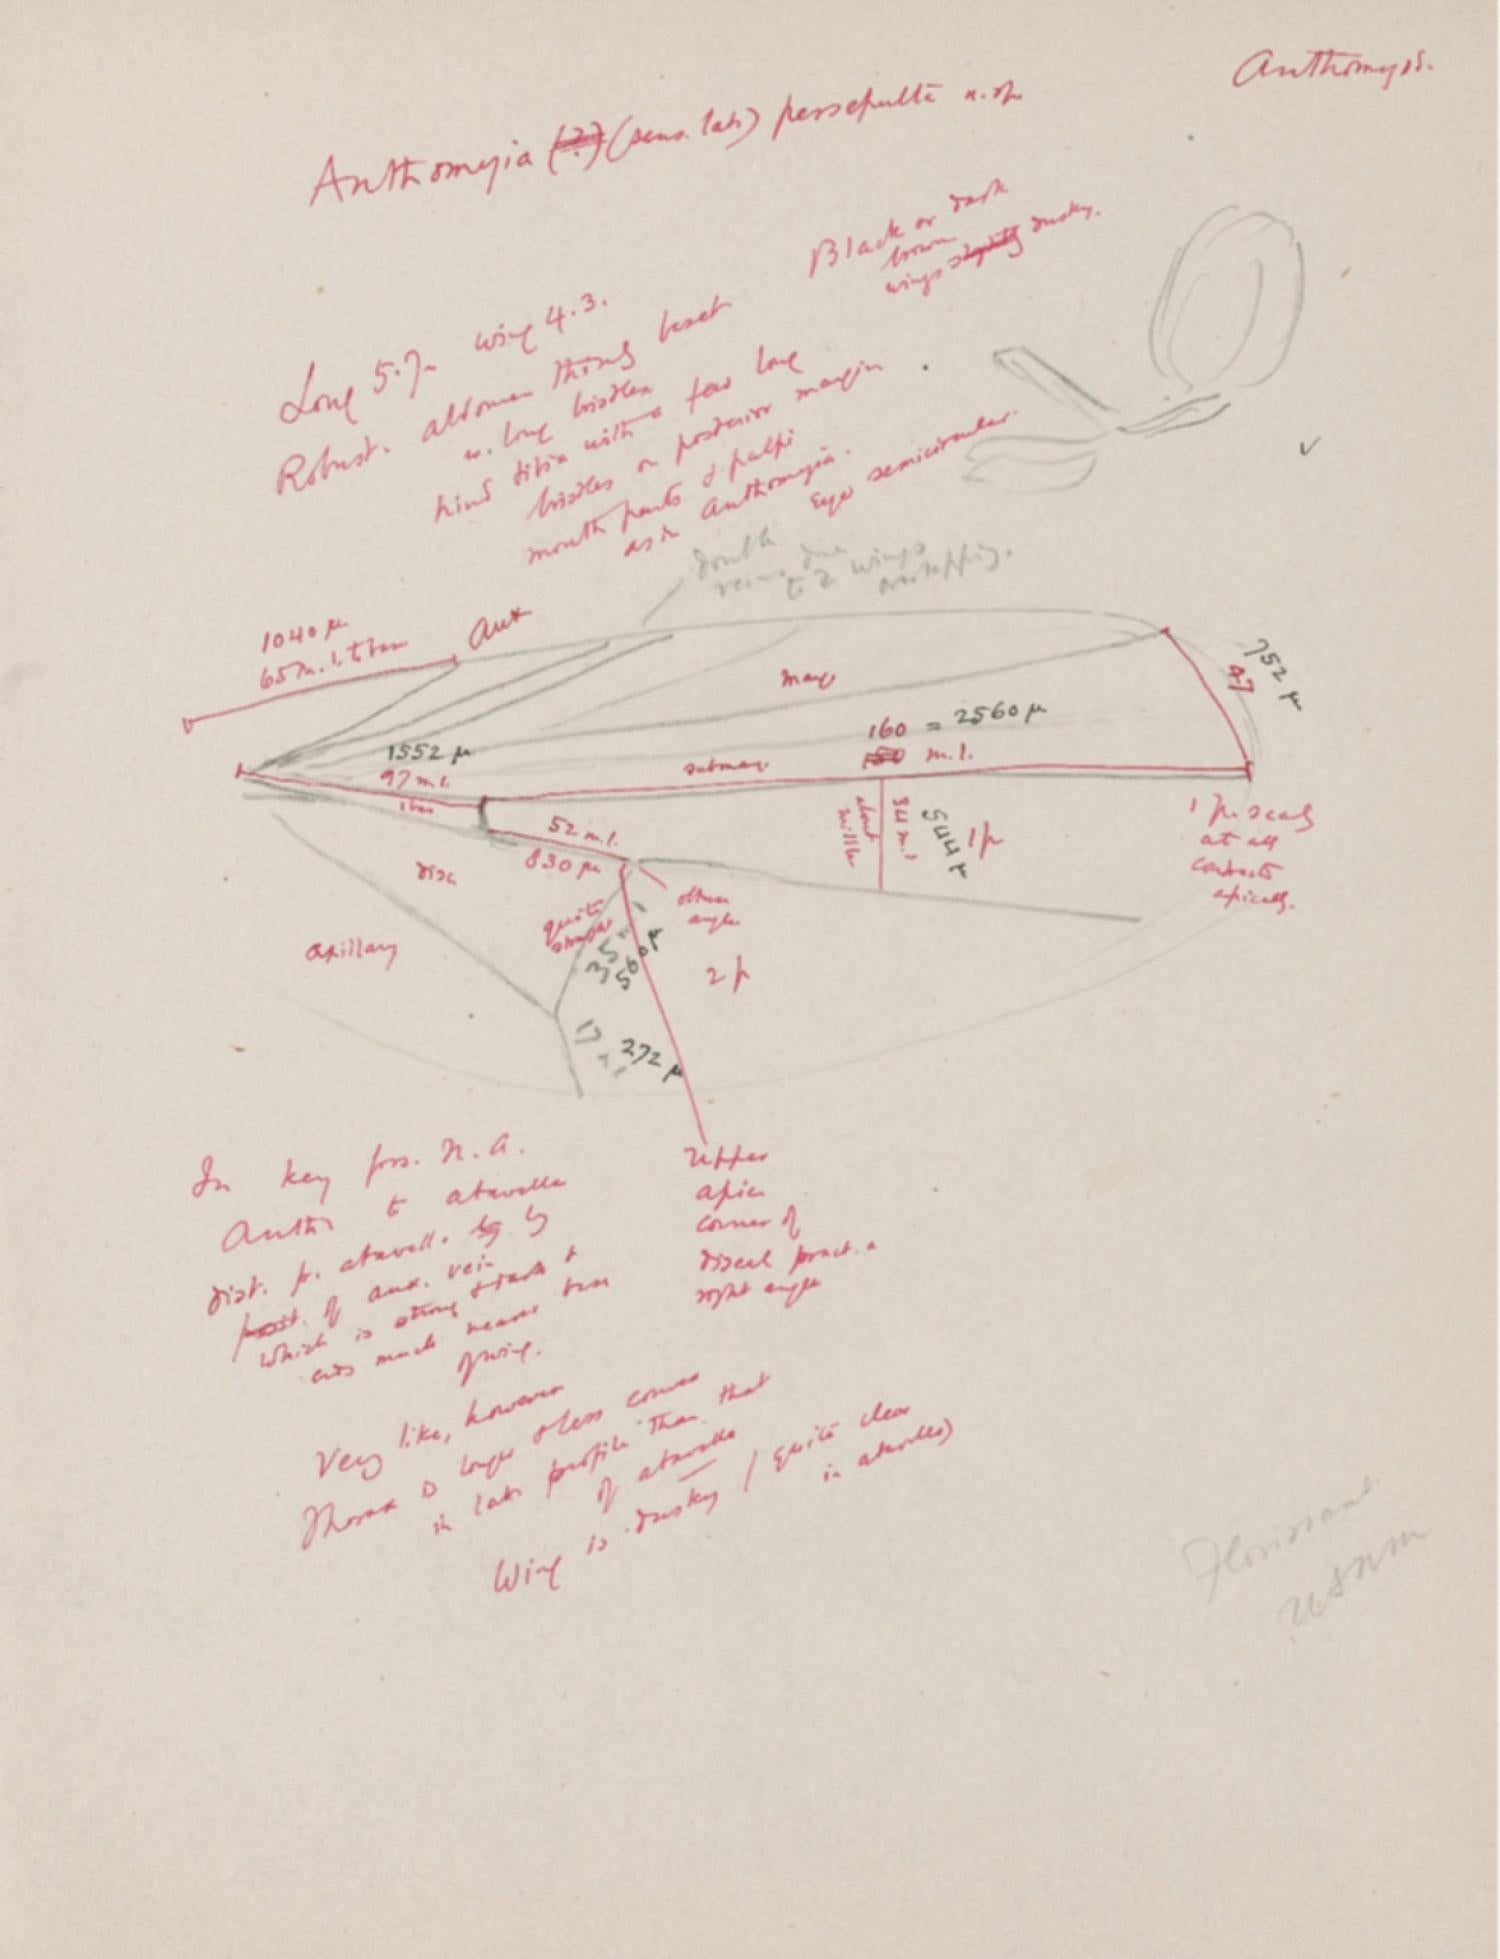 Anthomyid.
Anthomyia (?) (sens. lat.) persepulta n.sp
Black or dark
brown
wings slightly dusky.
Long 5.7 wing 4.3.
Robust. abdomen thinly beset
w. long bristles
hind tibia with a few long
bristles on posterior margin
mouth parts & palpi
as in Anthomyia.
Eye semicircular.
double
veins due
to 2 wings
overlapping.
1040 µ
65 m.l. to base
aux
marg
752 µ
47
160 = 2560 µ
150 m.l.
1552 µ
97 m.l.
1 bas
submarg.
52 m.l.
830 µ
about
middle
34 m.l
544 µ
1p
1 p. scarcely
at all
contracts
apically.
disc
axillary
quite
straight
35 =
560 µ
obtuse
angle
2 p
17 =
272 µ
Upper
apical
corner of
discal pract. a
right angle
In key foss. N.A.
Anth. to atavella
dist. fr. atavella by by
post. of aux. vein
which is strong & dark &
ends much nearer base
of wing.
Very like, however
Thorax is longer & less convex
in lat. profile than that
of atavella
Wing is dusky (quite clear
in atavella)
Florissant
USNM